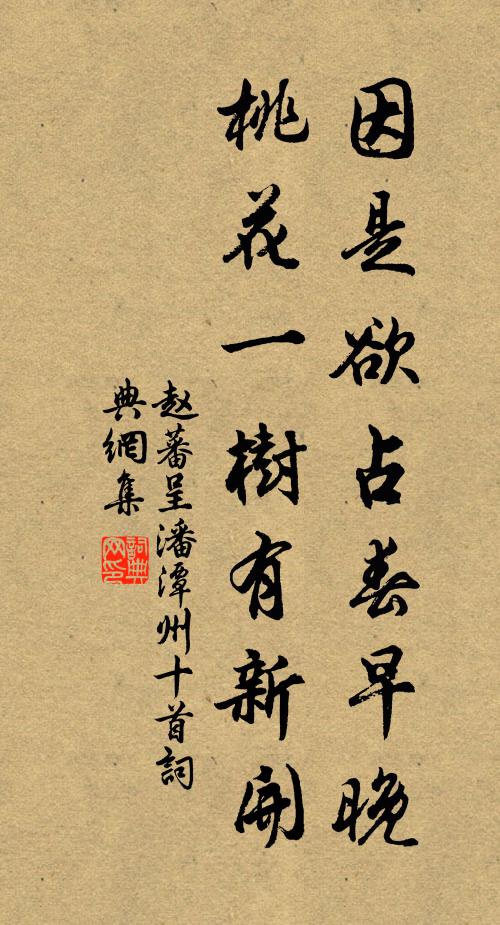 因是欲占春早晚
桃花一樹有新開
赵蕃呈潘潭州十首詞
典網集
詞典
网印